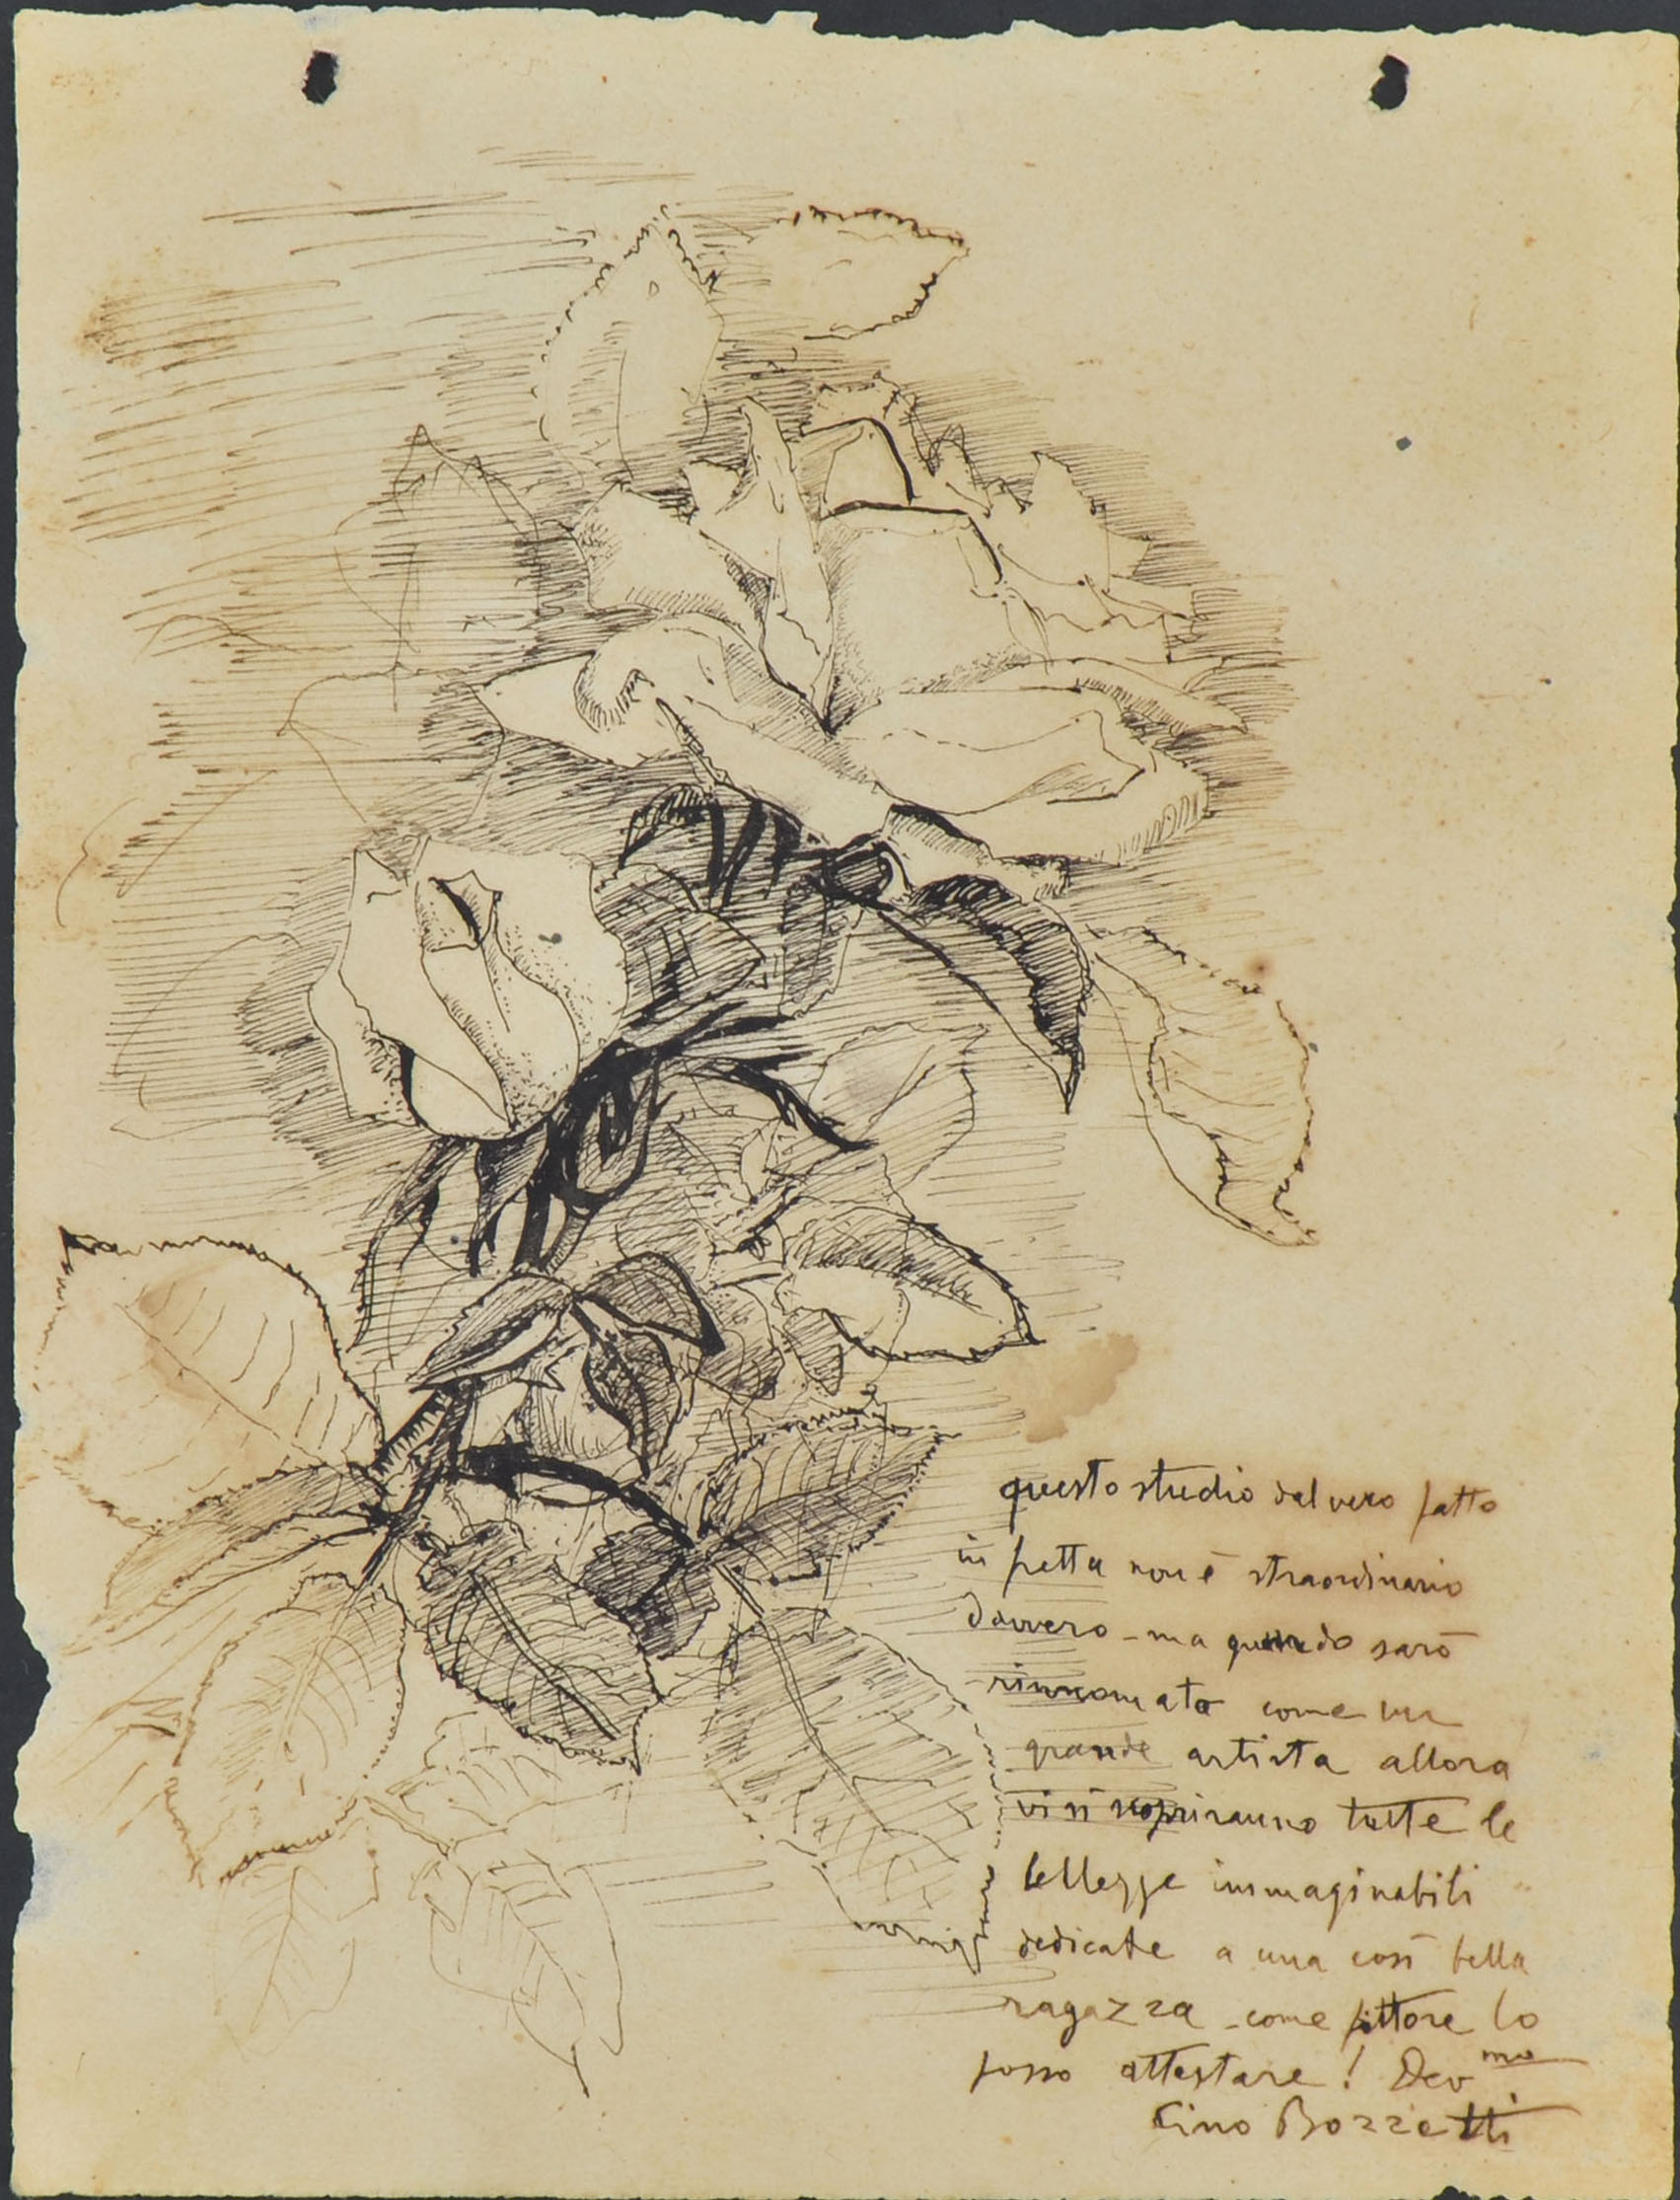 questo studio dal vero fatto
in fretta non è straordinario
davvero - ma quando sarò
rinnomato come un
grande artista allora
vi si scopriranno tutte le
bellezze immaginabili
dedicate a una così bella
ragazza - come pittore lo
posso attestare! Dev mo
Cino Bozzetti